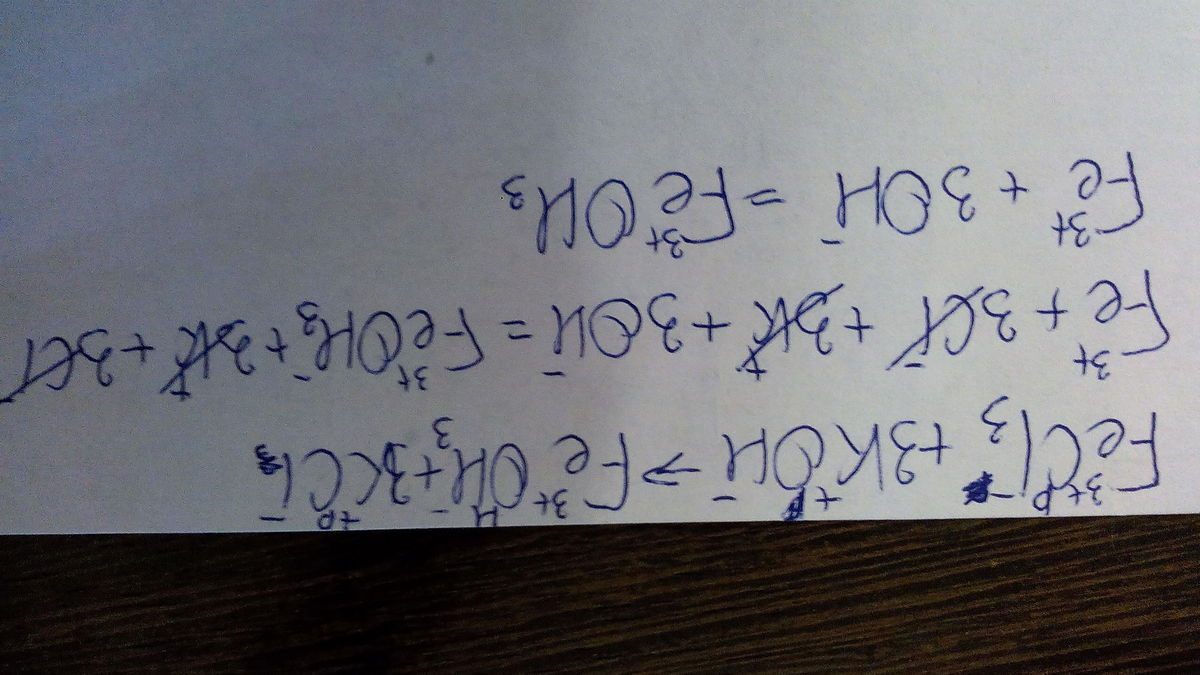 Fe³⁺Cl₃⁻ + 3K⁺OH⁻ → Fe³⁺OH₃⁻ + 3K⁺Cl⁻
Fe³⁺ + 3Cl⁻ + 3K⁺ + 3OH⁻ = Fe³⁺OH₃⁻ + 3K⁺ + 3Cl⁻
Fe³⁺ + 3OH⁻ = Fe³⁺OH₃